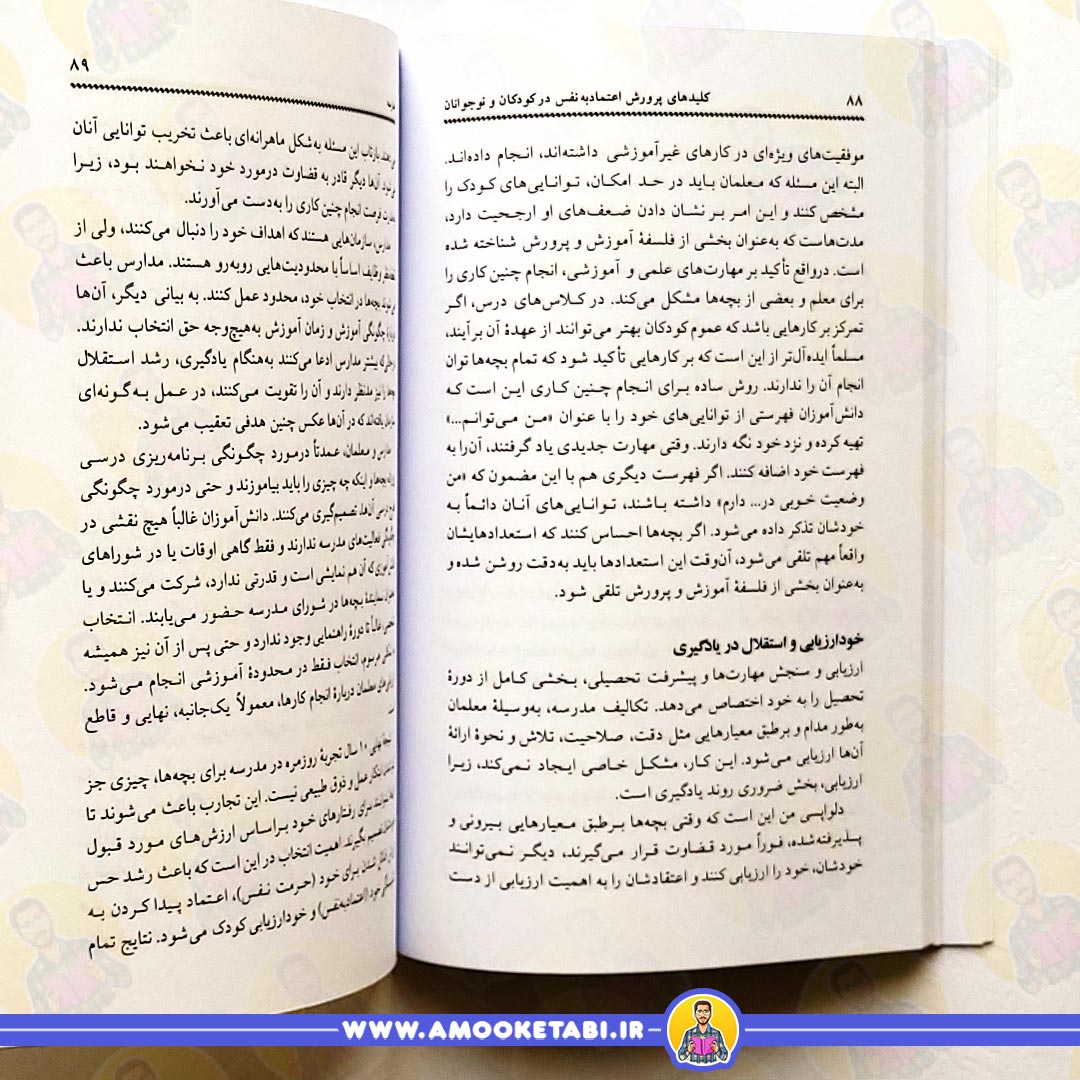 ۸۸
کلیدهای پرورش اعتمادبه‌نفس در کودکان و نوجوانان
موفقیت‌های ویژه‌ای در کارهای غیرآموزشی داشته‌اند، انجام داده‌اند.
البته این مسئله که معلمان باید در حد امکان، توانایی‌های کودک را
مشخص کنند و این امر بر نشان دادن ضعف‌های او ارجحیت دارد،
مدت‌هاست که به‌عنوان بخشی از فلسفهٔ آموزش و پرورش شناخته شده
است. درواقع تأکید بر مهارت‌های علمی و آموزشی، انجام چنین کاری را
برای معلم و بعضی از بچه‌ها مشکل می‌کند. در کلاس‌های درس، اگر
تمرکز بر کارهایی باشد که عموم کودکان بهتر می‌توانند از عهدهٔ آن برآیند،
مسلماً ایده‌آل‌تر از این است که بر کارهایی تأکید شود که تمام بچه‌ها توان
انجام آن را ندارند. روش ساده برای انجام چنین کاری این است که
دانش‌آموزان فهرستی از توانایی‌های خود را با عنوان «من می‌توانم...»
تهیه کرده و نزد خود نگه دارند. وقتی مهارت جدیدی یاد گرفتند، آن‌را به
فهرست خود اضافه کنند. اگر فهرست دیگری هم با این مضمون که «من
وضعیت خوبی در... دارم» داشته باشند، توانایی‌های آنان دائماً به
خودشان تذکر داده می‌شود. اگر بچه‌ها احساس کنند که استعدادهایشان
واقعاً مهم تلقی می‌شود، آن‌وقت این استعدادها باید به‌دقت روشن شده و
به‌عنوان بخشی از فلسفهٔ آموزش و پرورش تلقی شود.
خودارزیابی و استقلال در یادگیری
ارزیابی و سنجش مهارت‌ها و پیشرفت تحصیلی، بخشی کامل از دورهٔ
تحصیل را به خود اختصاص می‌دهد. تکالیف مدرسه، به‌وسیلهٔ معلمان
به‌طور مدام و برطبق معیارهایی مثل دقت، صلاحیت، تلاش و نحوهٔ ارائهٔ
آن‌ها ارزیابی می‌شود. این کار، مشکل خاصی ایجاد نمی‌کند، زیرا
ارزیابی، بخش ضروری روند یادگیری است.
دلواپسی من این است که وقتی بچه‌ها برطبق معیارهایی بیرونی و
پذیرفته‌شده، فوراً مورد قضاوت قرار می‌گیرند، دیگر نمی‌توانند
خودشان، خود را ارزیابی کنند و اعتقادشان را به اهمیت ارزیابی از دست
۸۹
بازتاب این مسئله به‌شکل ماهرانه‌ای باعث تخریب توانایی آنان
آن‌ها دیگر قادر به قضاوت درمورد خود نخواهند بود، زیرا
فرصت انجام چنین کاری را به‌دست می‌آورند.
مدارس، سازمان‌هایی هستند که اهداف خود را دنبال می‌کنند، ولی از
وظایف اساساً با محدودیت‌هایی روبه‌رو هستند. مدارس باعث
بچه‌ها در انتخاب خود، محدود عمل کنند. به بیانی دیگر، آن‌ها
چگونگی آموزش و زمان آموزش به‌هیچ‌وجه حق انتخاب ندارند.
بیشتر مدارس ادعا می‌کنند به‌هنگام یادگیری، رشد استقلال
را نیز مدنظر دارند و آن را تقویت می‌کنند، در عمل به‌گونه‌ای
که در آن‌ها عکس چنین هدفی تعقیب می‌شود.
و معلمان، عمدتاً درمورد چگونگی برنامه‌ریزی درسی
بچه‌ها و اینکه چه چیزی را باید بیاموزند و حتی درمورد چگونگی
آن‌ها، تصمیم‌گیری می‌کنند. دانش‌آموزان غالباً هیچ نقشی در
فعالیت‌های مدرسه ندارند و فقط گاهی اوقات یا در شوراهای
که آن هم نمایشی است و قدرتی ندارد، شرکت می‌کنند و یا
نمایندهٔ بچه‌ها در شورای مدرسه حضور می‌یابند. انتخاب
غالباً تا دورهٔ راهنمایی وجود ندارد و حتی پس از آن نیز همیشه
مرسوم، انتخاب فقط در محدودهٔ آموزشی انجام می‌شود.
معلمان دربارهٔ انجام کارها، معمولاً یک‌جانبه، نهایی و قاطع
۱۰ سال تجربهٔ روزمره در مدرسه برای بچه‌ها، چیزی جز
عمل و ذوق طبیعی نیست. این تجارب باعث می‌شوند تا
برای رفتارهای خود براساس ارزش‌های مورد قبول
تصمیم بگیرند. اهمیت انتخاب در این است که باعث رشد حس
شدن برای خود (حرمت نفس)، اعتماد پیدا کردن به
خود (اعتمادبه‌نفس) و خودارزیابی کودک می‌شود. نتایج تمام
WWW.AMOOKETABI.IR